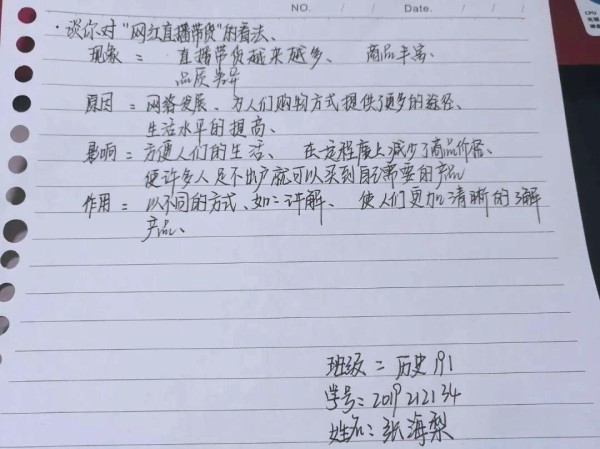 NO.
Date. / /
·谈你对"网红直播带货"的看法、
现象: 直播带货越来越多、 商品丰富、
品质差异
原因: 网络发展、为人们购物方式提供了更多的途径、
生活水平的提高、
影响: 方便人们的生活、 在一定程度上减少了商品价格、
使许多人足不出户就可以买到自己需要的产品
作用: 以不同的方式、如:讲解、 使人们更加清晰的了解
产品、
班级: 历史191
学号: 2019212134
姓名: 张海梨